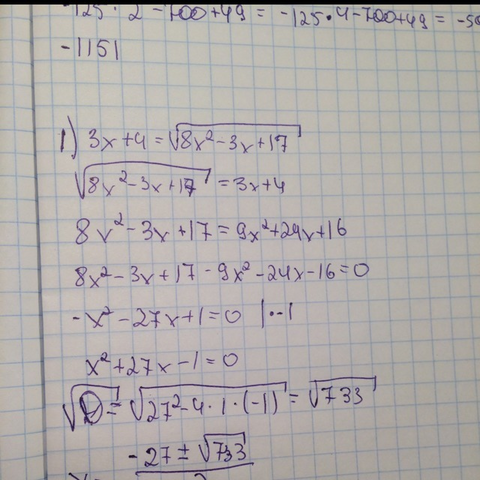 -125·2 - 700+49 = -125·4-700+49 =
-1151
1) 3x+4 = √(8x²-3x+17)
√(8x²-3x+17) = 3x+4
8x²-3x+17 = 9x²+24x+16
8x²-3x+17-9x²-24x-16=0
-x²-27x+1=0 |·-1
x²+27x-1=0
√D = √(27²-4·1·(-1)) = √733
-27±√733